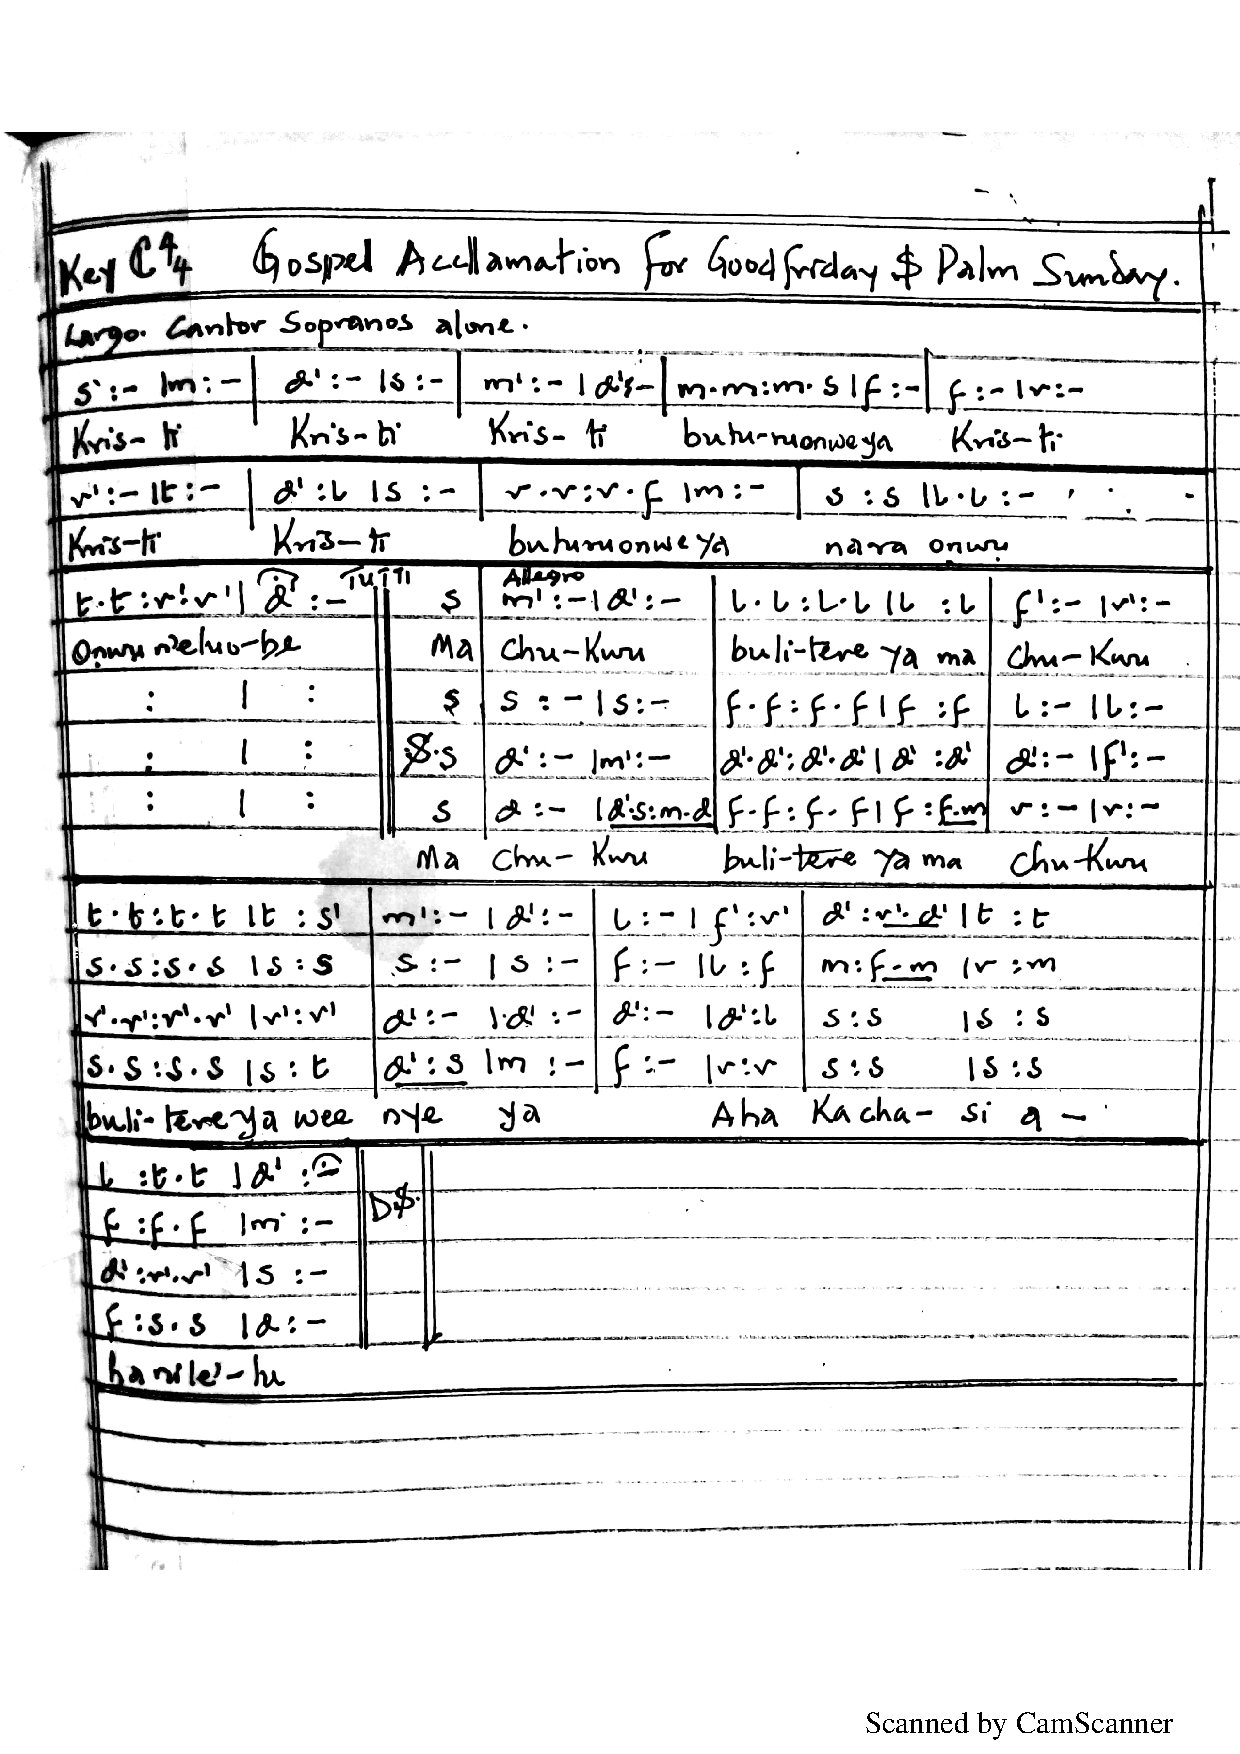 Key C 4/4 Gospel Acclamation for Goodfriday $ Palm Sunday.
Largo. Cantor Sopranos alone.
s :- |m :- | d' :- |s :- | m' :- | d's- | m.m:m.s |f :- | f :- |r :-
Kris-ti Kris-ti Kris-ti butu-ruonweya Kris-ti
r' :- |t :- | d' :l |s :- | r.r:r.f |m :- | s :s |l.l :-
Kris-ti Kris-ti buturuonweya nara onwu
t.t :r'.r' | d' :- TUTTI s | Allegro m' :- | d' :- | l.l :l.l |l :l | f' :- |r' :-
Ma Chu-Kwu buli-tere ya ma Chu-Kwu
: | : s | s :- |s :- | f.f :f.f |f :f | l :- |l :-
: | : $.s | d' :- |m' :- | d'.d':d'.d' |d' :d' | d' :- |f' :-
: | : s | d :- |d'.s:m.d | f.f :f.f |f :f.m | r :- |r :-
Ma Chu-Kwu buli-tere ya ma Chu-Kwu
t.t :t.t |t :s' | m' :- |d' :- | l :- |f' :r' | d' :r'.d' |t :t
s.s :s.s |s :s | s :- |s :- | f :- |l :f | m :f.m |r :m
r'.r':r'.r' |r' :r' | d' :- |d' :- | d' :- |d' :l | s :s |s :s
s.s :s.s |s :t | d' :s |m :- | f :- |r :r | s :s |s :s
buli-tere ya wee nye ya Aha Ka cha- si a -
l :t.t |d' :- D$
f :f.f |m :-
d' :r'.r' |s :-
f :s.s |d :-